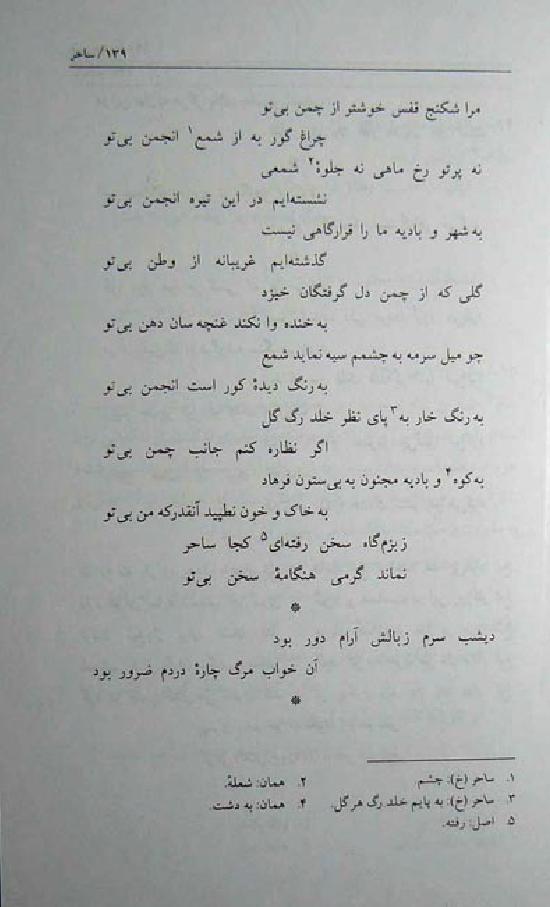 ۱۳۹/ساحر
مرا شکنج قفس خوشتر از چمن بی‌تو
چراغ گور به از شمع۱ انجمن بی‌تو
نه پرتو رخ ماهی نه جلوهٔ۲ شمعی
نشسته‌ایم در این تیره انجمن بی‌تو
به شهر و بادیه ما را قرارگاهی نیست
گذشته‌ایم غریبانه از وطن بی‌تو
گلی که از چمن دل گرفتگان خیزد
به خنده وا نکند غنچه‌سان دهن بی‌تو
چو میل سرمه به چشمم سیه نماید شمع
به‌رنگ دیدهٔ کور است انجمن بی‌تو
به‌رنگ خار به۳ پای نظر خلد رگ گل
اگر نظاره کنم جانب چمن بی‌تو
به‌کوه۴ و بادیه مجنون به بی‌ستون فرهاد
به خاک و خون نطپید آنقدرکه من بی‌تو
زبزم‌گاه سخن رفته‌ای۵ کجا ساحر
نماند گرمی هنگامهٔ سخن بی‌تو
*
دیشب سرم زبالش آرام دور بود
آن خواب مرگ چارهٔ دردم ضرور بود
*
۱. ساحر (خ): چشم ۲. همان: شعلهٔ.
۳. ساحر (خ): به پایم خلد رگ هر گل. ۴. همان: به دشت.
۵. اصل: رفته.